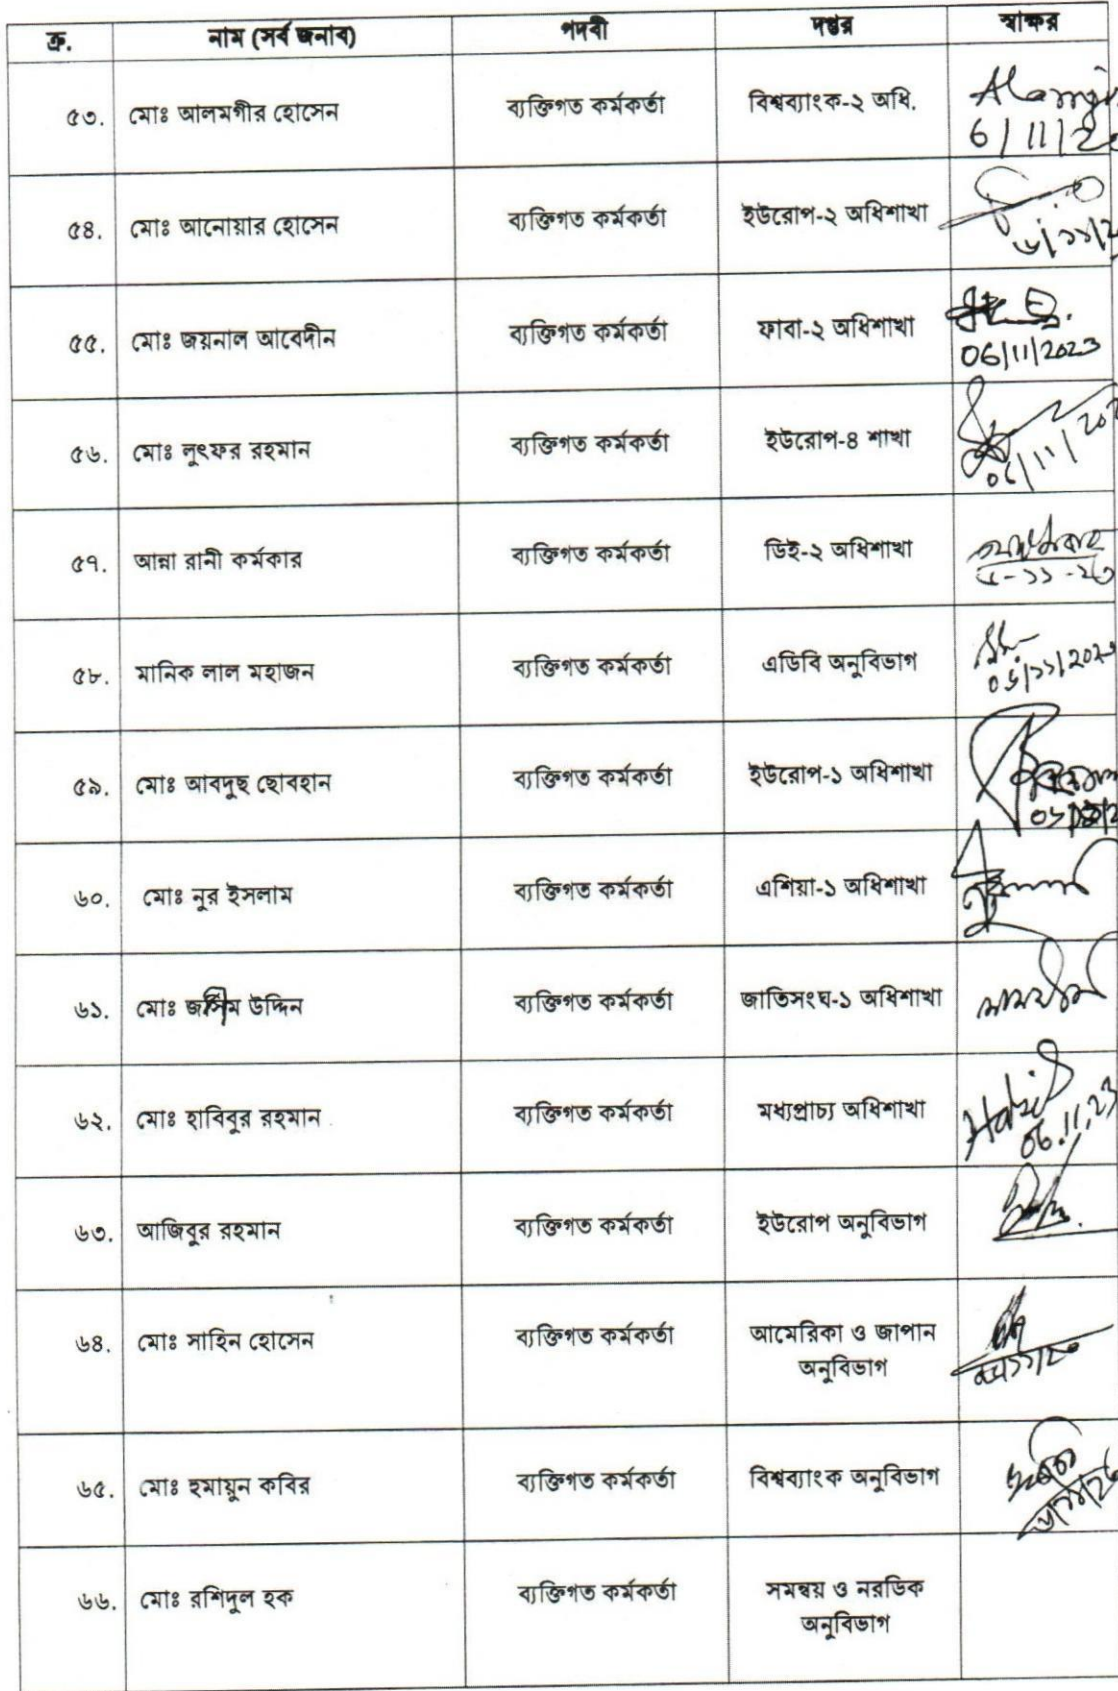 ক্র. নাম (সর্ব জনাব) পদবী দপ্তর স্বাক্ষর
৫৩. মোঃ আলমগীর হোসেন ব্যক্তিগত কর্মকর্তা বিশ্বব্যাংক-২ অধি.
6/11/2
৫৪. মোঃ আনোয়ার হোসেন ব্যক্তিগত কর্মকর্তা ইউরোপ-২ অধিশাখা
৫৫. মোঃ জয়নাল আবেদীন ব্যক্তিগত কর্মকর্তা ফাবা-২ অধিশাখা
06/11/2023
৫৬. মোঃ লুৎফর রহমান ব্যক্তিগত কর্মকর্তা ইউরোপ-৪ শাখা
06/11/202
৫৭. আন্না রানী কর্মকার ব্যক্তিগত কর্মকর্তা ডিই-২ অধিশাখা
৫৮. মানিক লাল মহাজন ব্যক্তিগত কর্মকর্তা এডিবি অনুবিভাগ
৫৯. মোঃ আবদুছ ছোবহান ব্যক্তিগত কর্মকর্তা ইউরোপ-১ অধিশাখা
৬০. মোঃ নুর ইসলাম ব্যক্তিগত কর্মকর্তা এশিয়া-১ অধিশাখা
৬১. মোঃ জসীম উদ্দিন ব্যক্তিগত কর্মকর্তা জাতিসংঘ-১ অধিশাখা
৬২. মোঃ হাবিবুর রহমান ব্যক্তিগত কর্মকর্তা মধ্যপ্রাচ্য অধিশাখা Habib
06.11.23
৬৩. আজিবুর রহমান ব্যক্তিগত কর্মকর্তা ইউরোপ অনুবিভাগ
৬৪. মোঃ সাহিন হোসেন ব্যক্তিগত কর্মকর্তা আমেরিকা ও জাপান
অনুবিভাগ
৬৫. মোঃ হুমায়ুন কবির ব্যক্তিগত কর্মকর্তা বিশ্বব্যাংক অনুবিভাগ
৬৬. মোঃ রশিদুল হক ব্যক্তিগত কর্মকর্তা সমন্বয় ও নরডিক
অনুবিভাগ